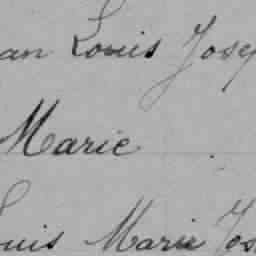 an Louis Josep
Marie
Louis Marie Jos